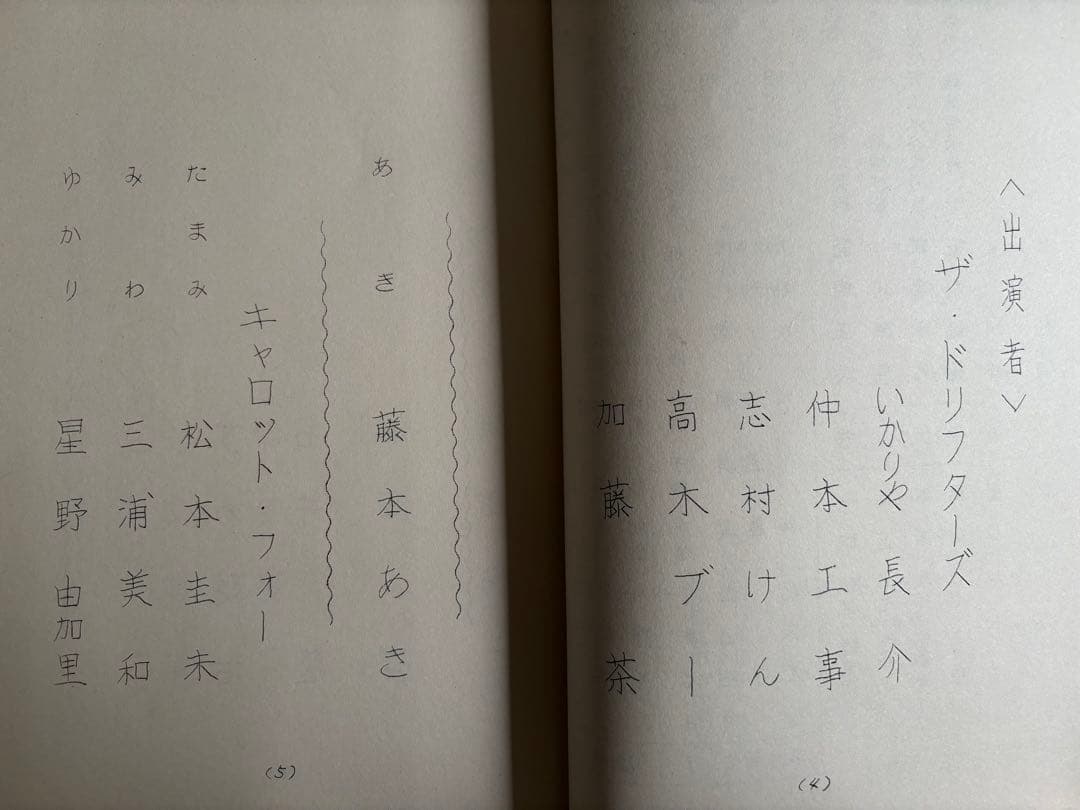 ＜出演者＞
ザ・ドリフターズ
いかりや長介
仲本工事
志村けん
高木ブー
加藤茶
(4)
あき 藤本あき
キャロット・フォー
たまみ 松本圭未
みわ 三浦美和
ゆかり 星野由加里
(5)